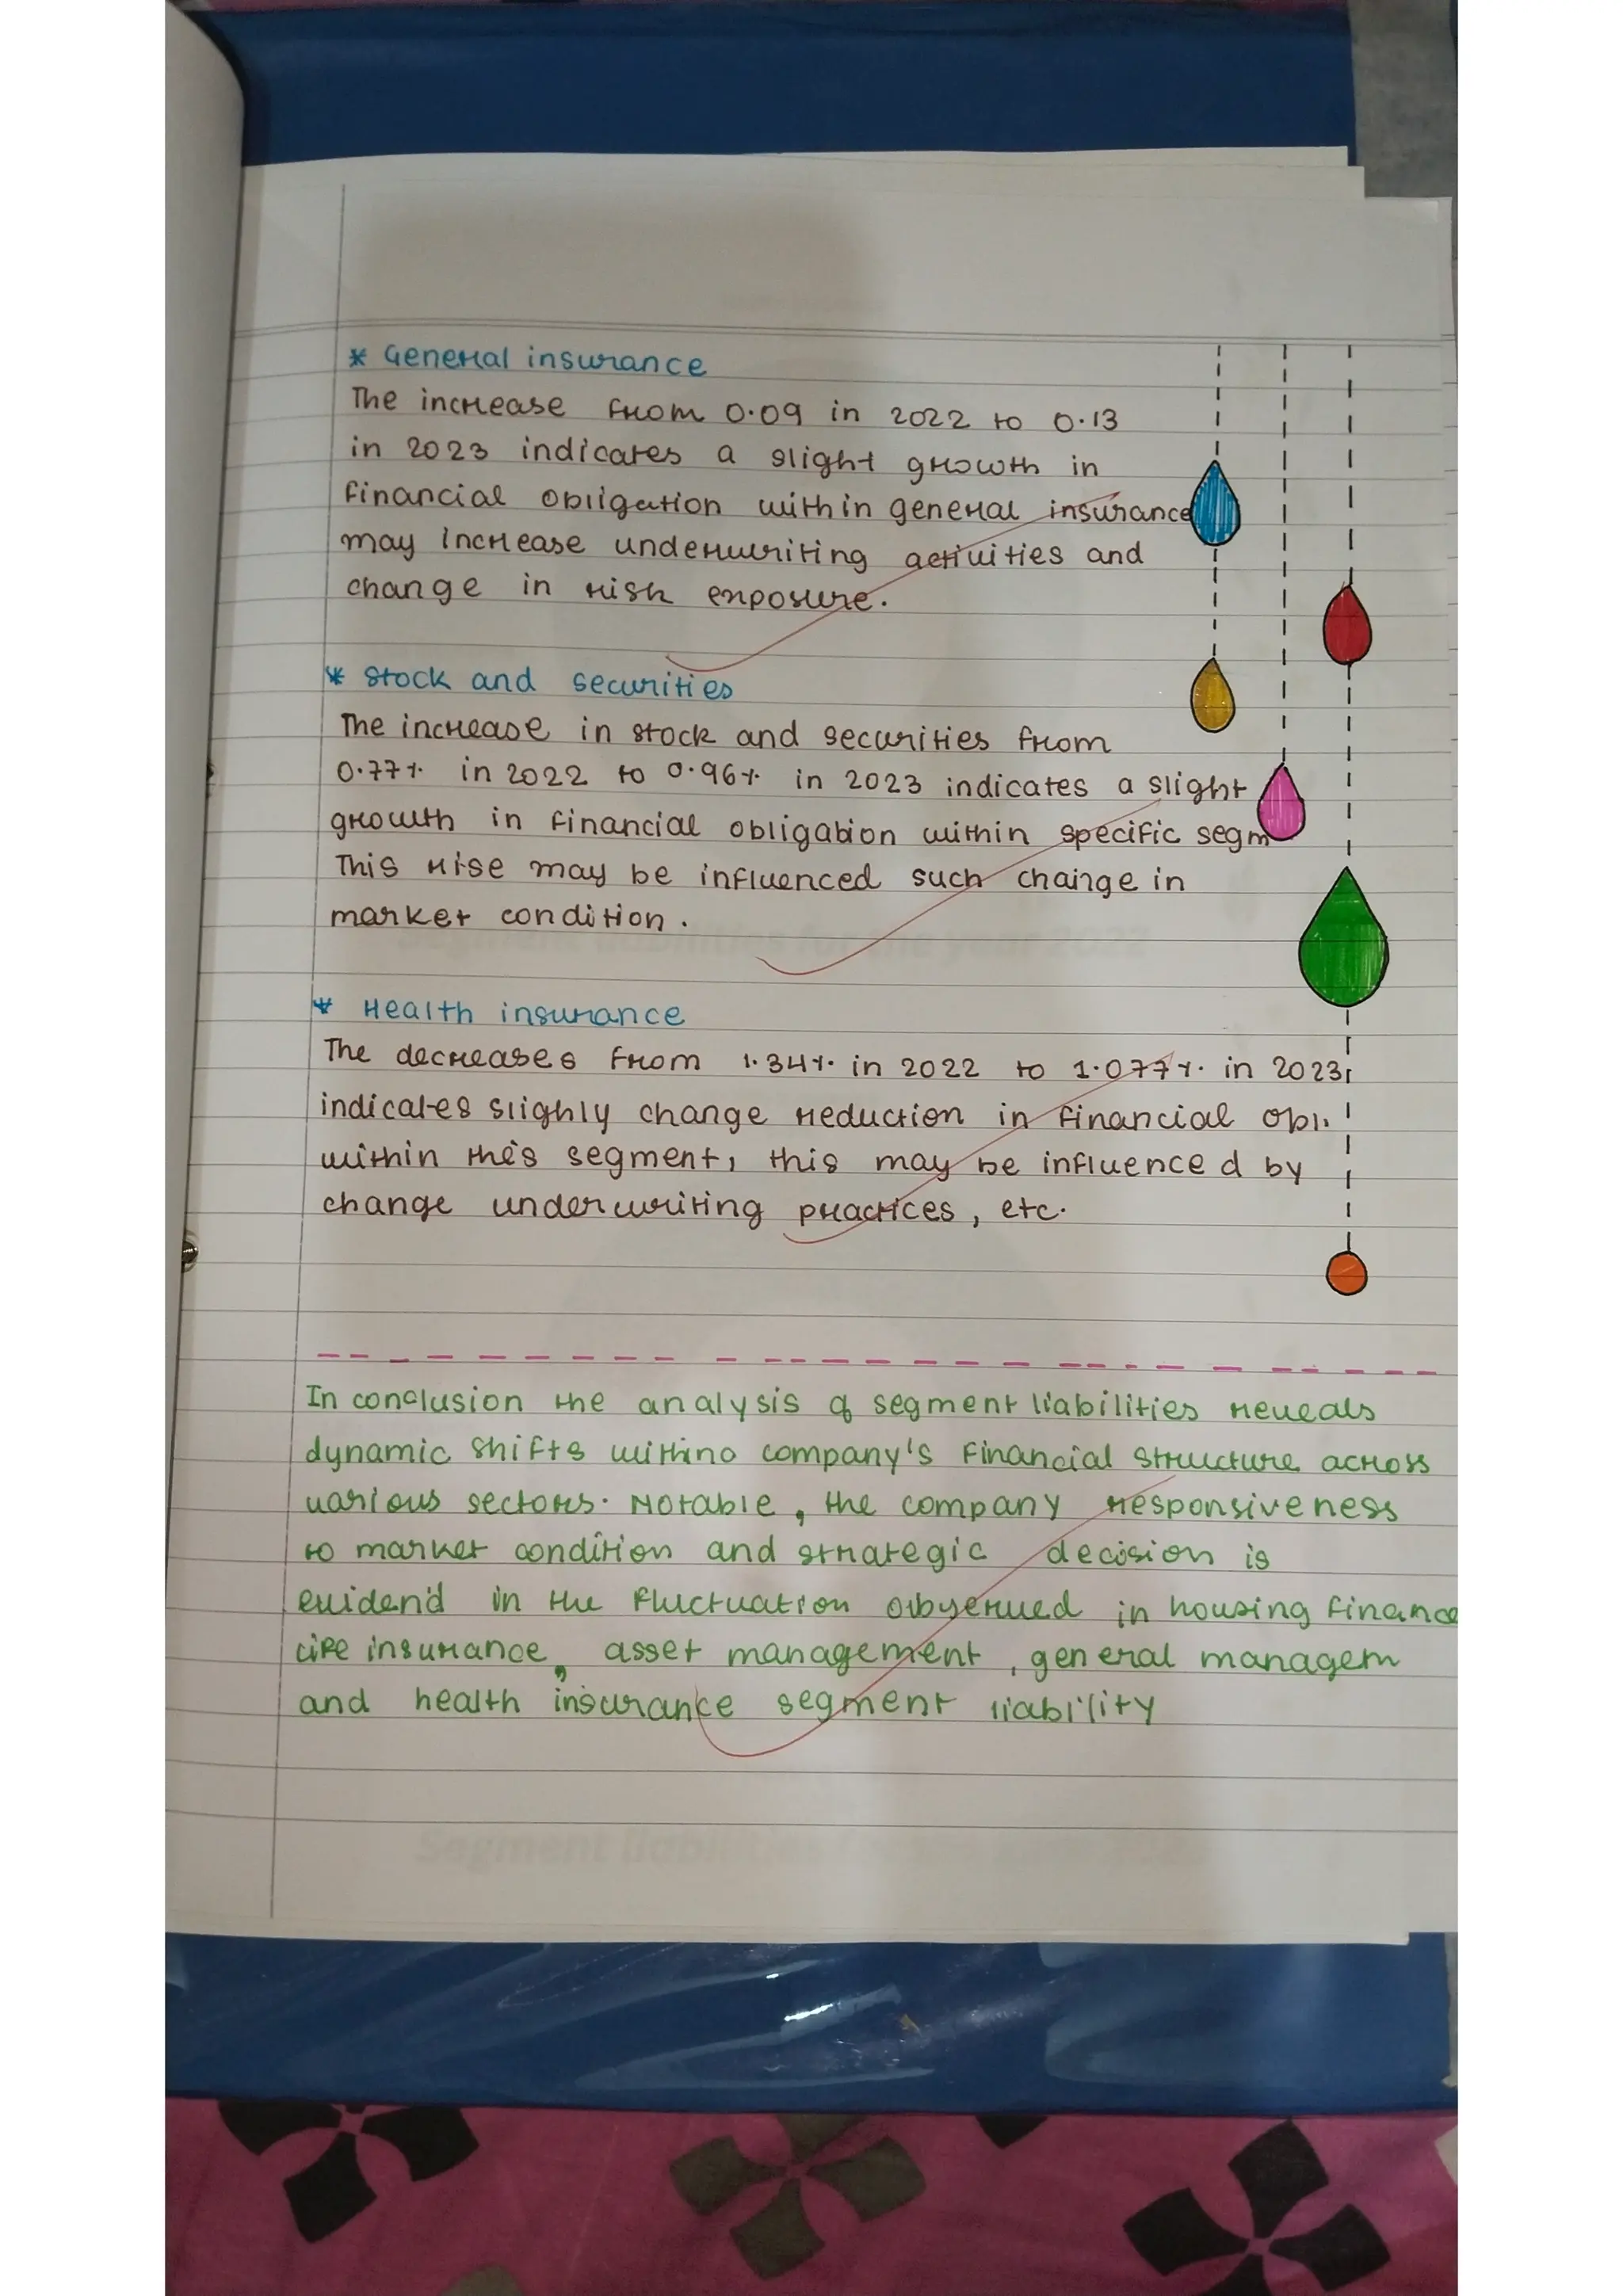 * General insurance
The increase from 0.09 in 2022 to 0.13
in 2023 indicates a slight growth in
financial obligation within general insurance
may increase underwriting activities and
change in risk exposure.
* Stock and securities
The increase in stock and securities from
0.77% in 2022 to 0.96% in 2023 indicates a slight
growth in financial obligation within specific segm
This rise may be influenced such change in
market condition.
* Health insurance
The decreases from 1.34% in 2022 to 1.077% in 2023,
indicates slighly change reduction in financial obli.
within this segment, this may be influenced by
change underwriting practices, etc.
In conclusion the analysis of segment liabilities reveals
dynamic shifts within company's financial structure across
various sectors. Notable, the company responsiveness
to market condition and strategic decision is
evidend in the fluctuation obyerved in housing finance
life insurance, asset management, general managem
and health insurance segment liability
Segment liabilities for the year 2022
Segment liabilities